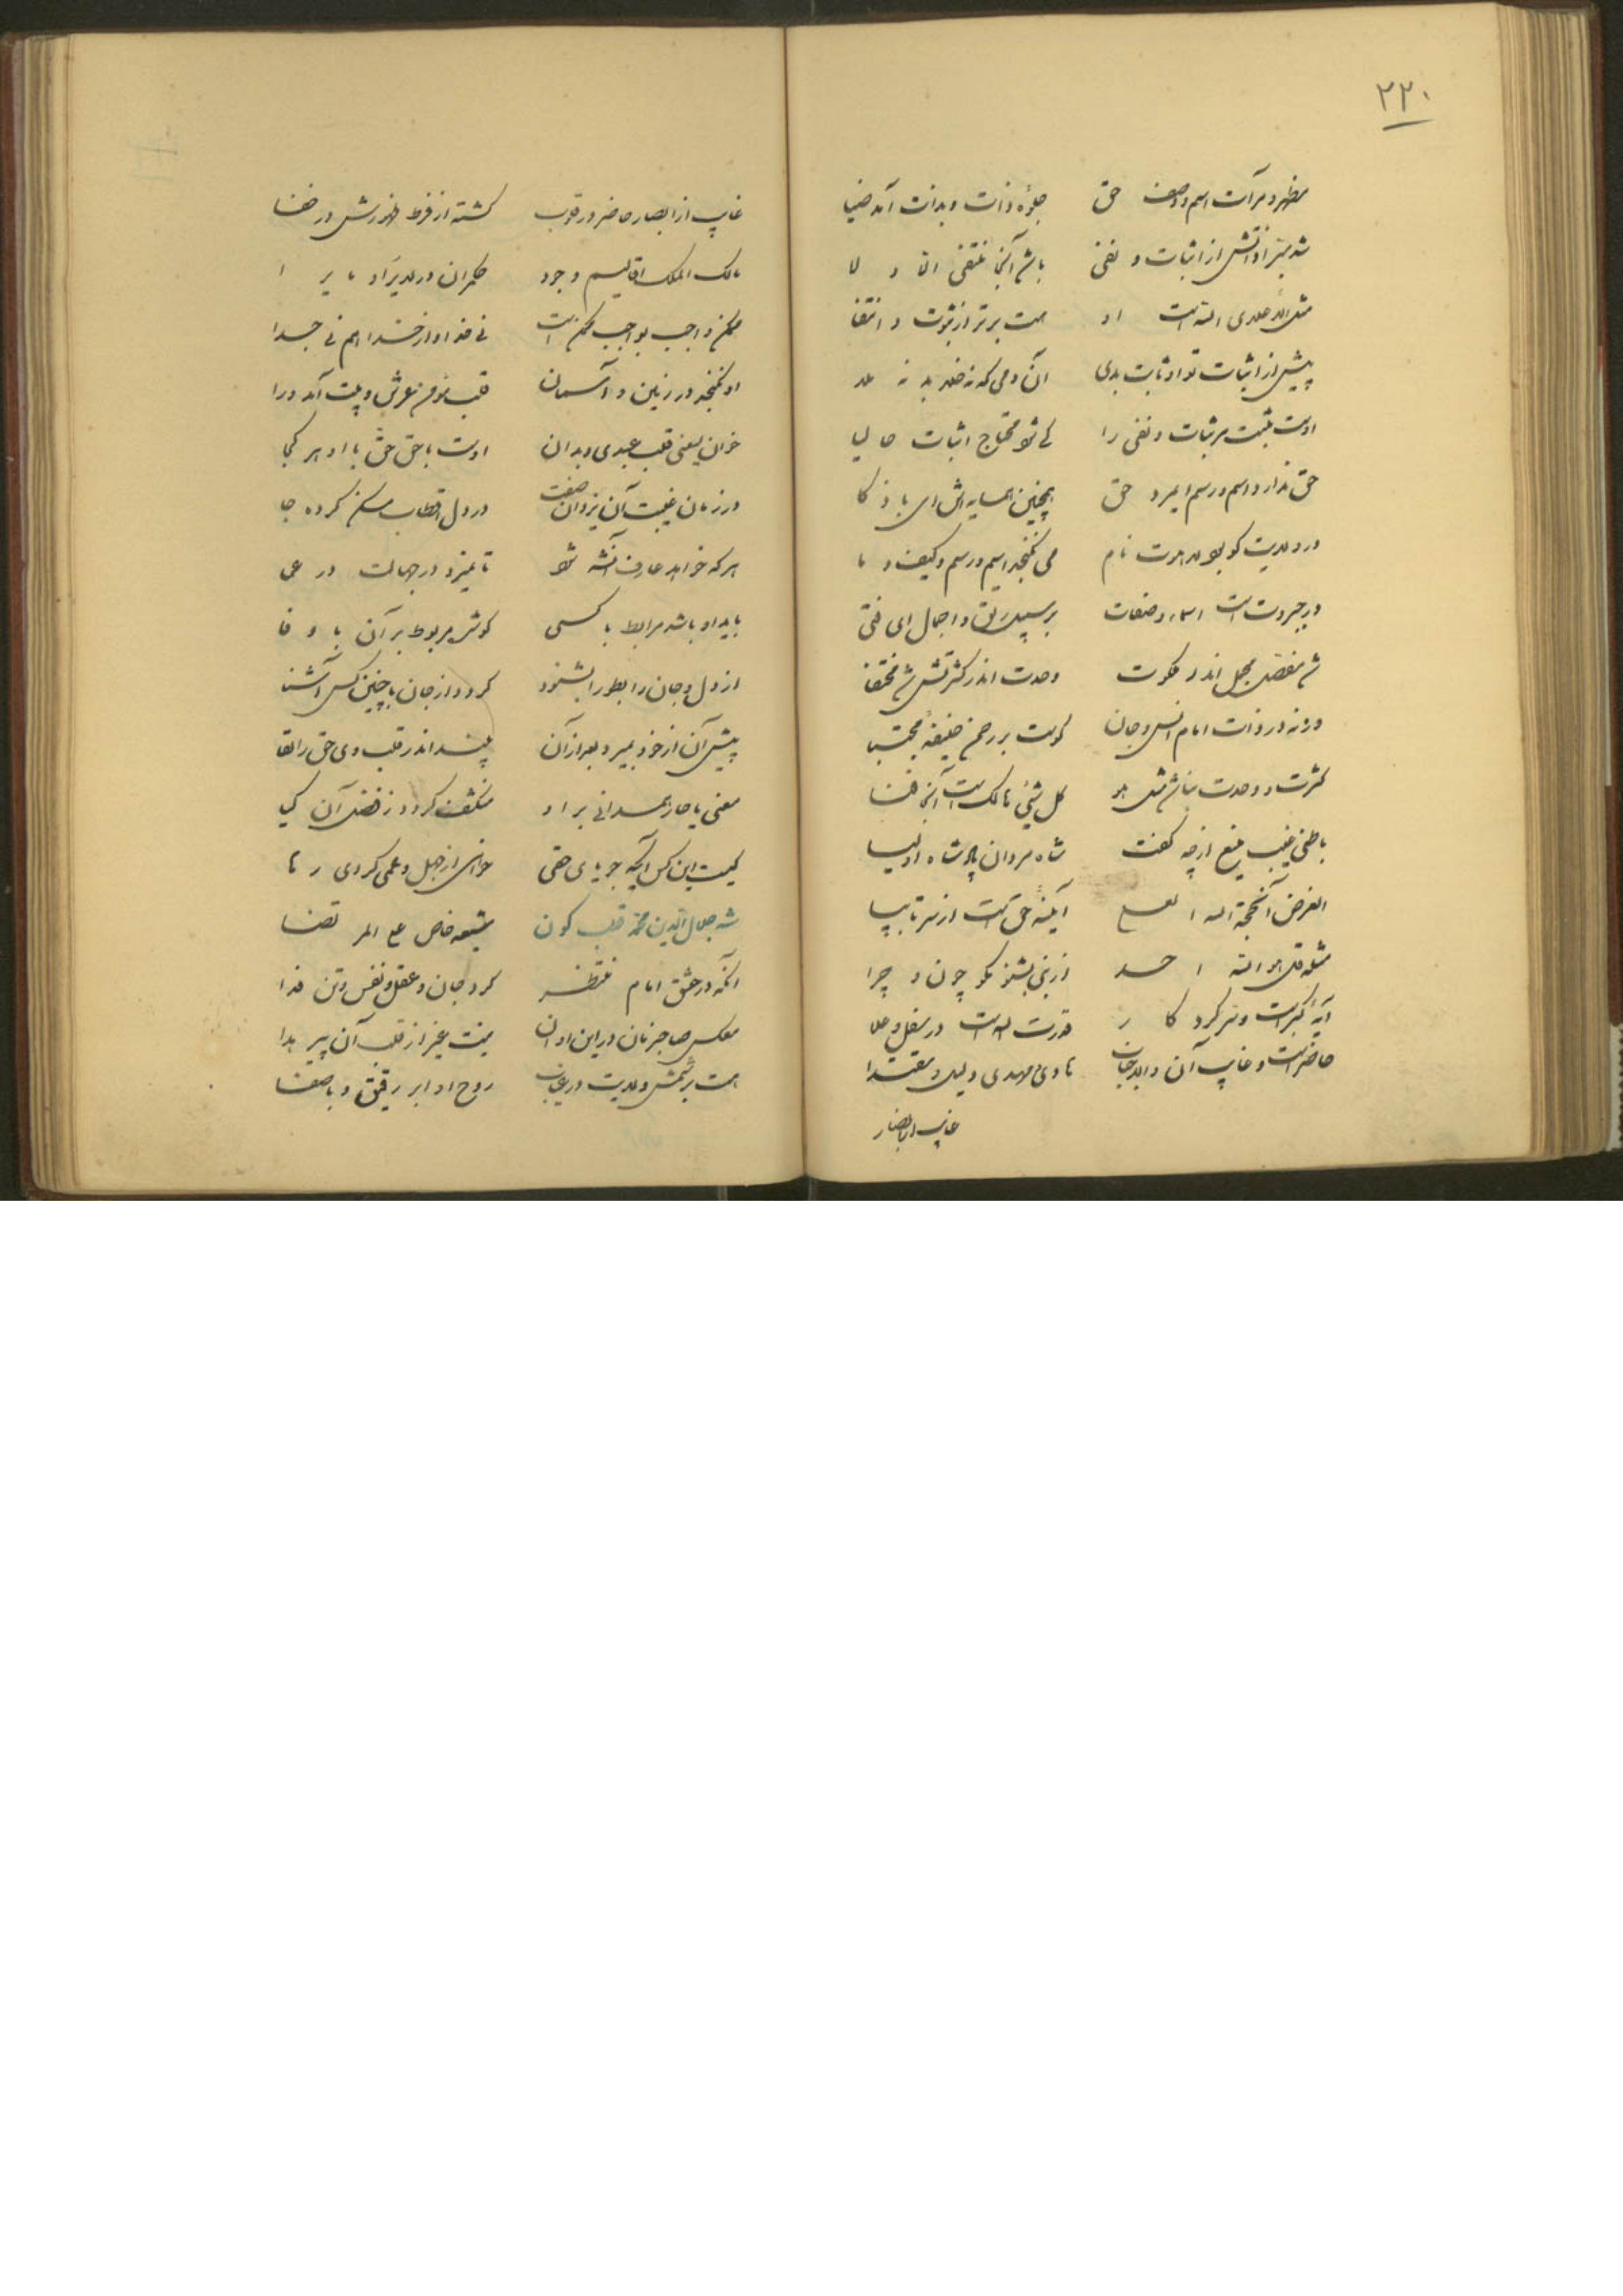 ۲۲۰
مظهر و مرآت اسم و وصف حق جلوهٔ ذات و بذات آمد ضیا
شد مبرا ذاتش از اثبات و نفی باشد آنجا منتفی الا و لا
هست برتر از ثبوت و انتفا
پیش از اثبات تو او ثابت بدی آن دمی که نه خلا بد نه ملا
اوست مثبت مر ثبات و نفی را کی شود محتاج اثبات حالیا
حق ندارد اسم و رسم ایمرد حق همچنین همسایه‌اش ای با ذکا
می نگنجد اسم و رسم و کیف و ما
در جبروت است اسماء و صفات بر سبیل رتق و اجمال ای فتی
شد مفصل مجمل اندر ملکوت وحدت اندر کثرتش شد مختفا
ورنه در ذات امام انس و جان
کثرت و وحدت نباشد مثل هو کل شیئ هالک است آنجا فنا
باطنی غیب منیع ارچه گفت شاه مردان پادشاه اولیا
الغرض آن حجة الله العلی آینهٔ حق است از سر تا بپا
مثله قل هو الله احد از نبی بشنو مگو چون و چرا
آیهٔ کبراست و سر کردکار قدرت الله است در سفل و علا
حاضر است و غایب آن والا جناب هادی و مهدی و لیل و مقتدا
غایب از ابصار
غایب از ابصار و حاضر در قلوب گشته از فرط ظهورش در خفا
مالک الملک اقالیم وجود حکمران در لایزاد مایرا
ممکن و واجب بواجب ممکن است نی خدا و از خدا هم نی جدا
او نگنجد در زمین و آسمان قلب مؤمن عرش و بیت آمد ورا
خوان یسعنی قلب عبدی و بدان اوست با حق حق با او هر کجا
در زمان غیبت آن یزدان صفت در دل اقطاب مسکن کرده جا
هر که خواهد عارف آنشه شود تا نمیرد در جهالت در عمی
باید او باشد مرابط با کسی کوش مربوط بر آن با وفا
از دل و جان رابطوا را بشنود گردد از جان با چنین کس آشنا
پیش آن از خود بمیرد بعد از آن بیند اندر قلب وی حق را لقا
معنی یا حار همدانی بر او منکشف گردد ز فضل آن کیا
کیست این کس ایکه جویای حقی خواهی از جهل و عمی گردی رها
شه جلال الدین محمد قطب کون شیعه خاص علی المرتضا
آنکه در عشق امام منتظر کرد جان و عقل و نفس و تن فدا
عکس صاحب زمان در این اوان نیست غیر از قلب آن پیر هدا
هست بر شمس ولایت در غیاب روح او ابر رقیق و با صفا